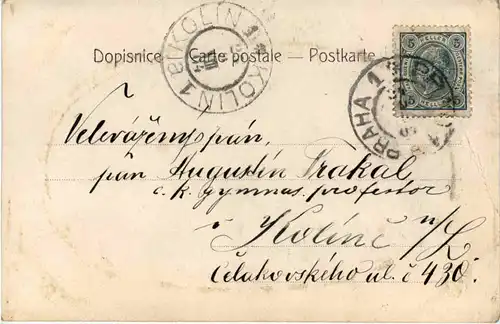 Dopisnice — Carte postale — Postkarte
KOLÍN 1
5 HELLER 5
PRAHA 1
Velevážený pán,
pán Augustin Trakal,
c. k. gymnas. professor
v Kolíně n/L
Čelakovského ul. č 430.